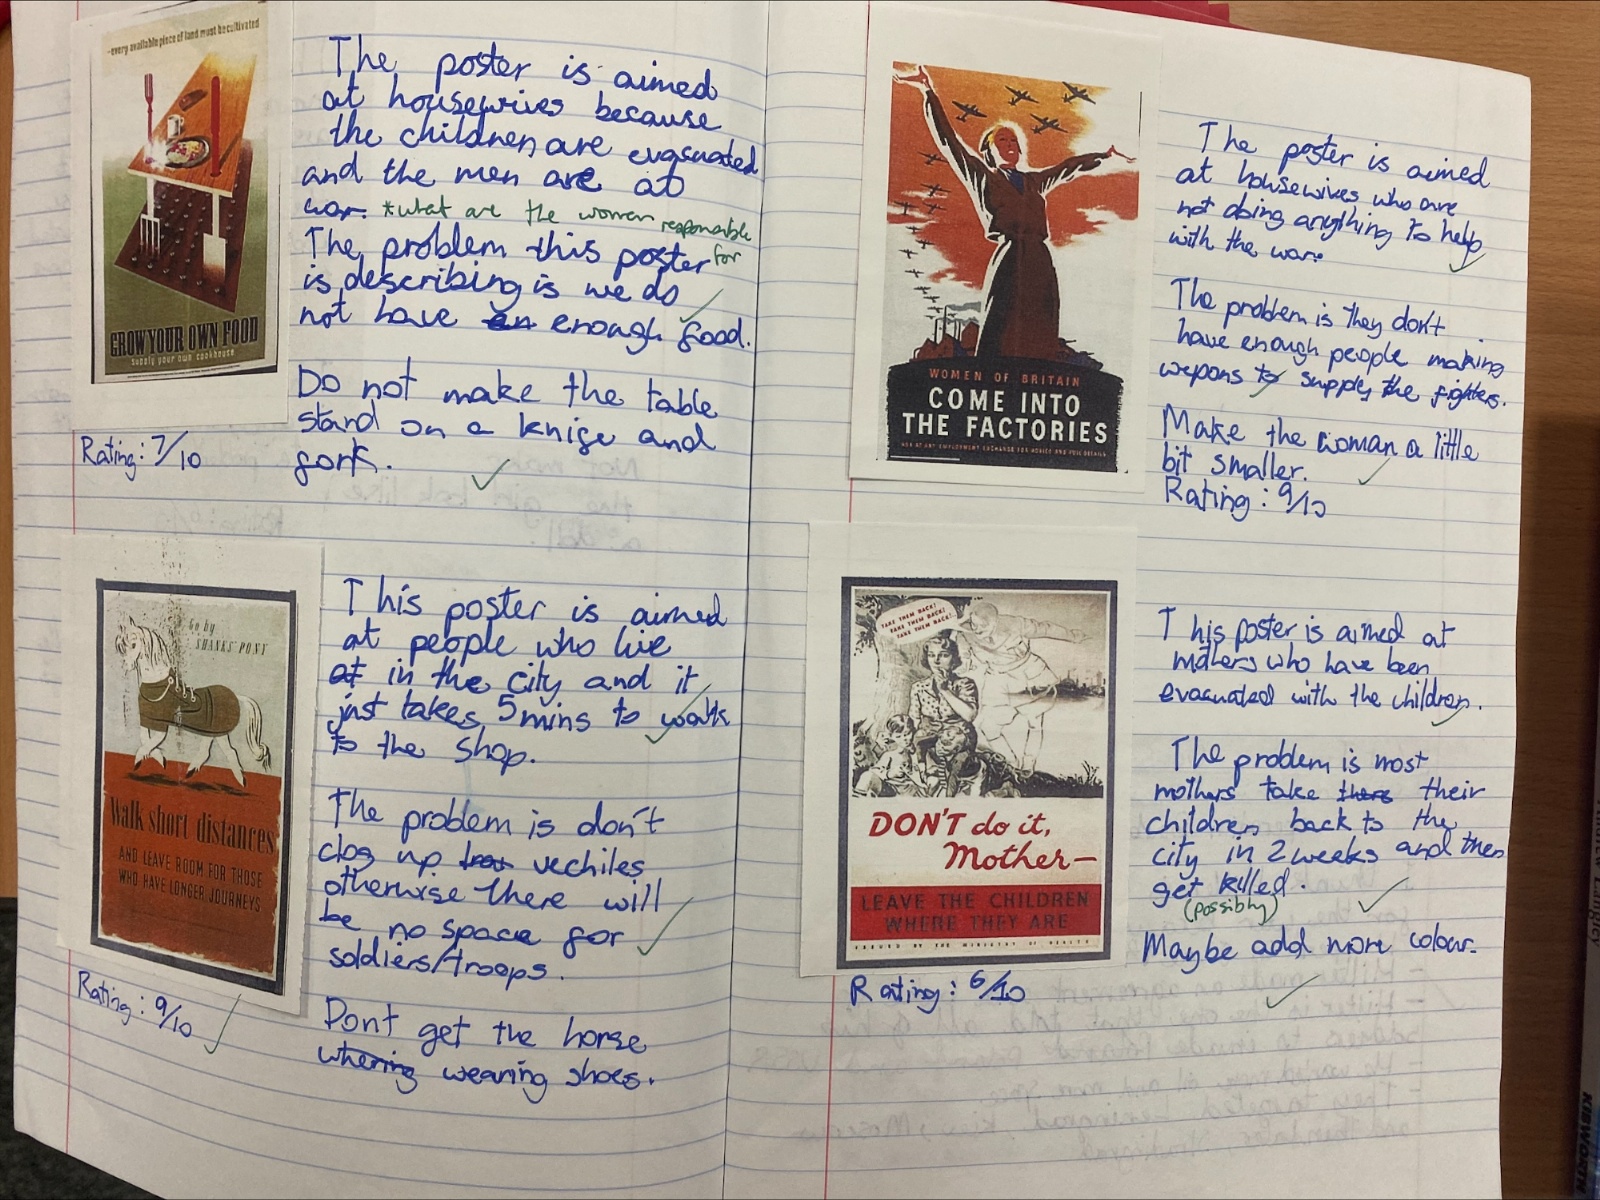 -every available piece of land must be cultivated
GROW YOUR OWN FOOD
supply your own cookhouse
Rating: 7/10
The poster is aimed
at housewives because
the children are evacuated
and the men are at
war. *what are the women responsible
for
The problem this poster
is describing is we do
not have en enough food.
Do not make the table
stand on a knife and
fork.
Go by
SHANKS' PONY
Walk short distances
AND LEAVE ROOM FOR THOSE
WHO HAVE LONGER JOURNEYS
Rating: 9/10
This poster is aimed
at people who live
at in the city and it
just takes 5 mins to walk
to the shop.
The problem is don't
clog up vechiles
otherwise there will
be no space for
soldiers/troops.
Dont get the horse
whering wearing shoes.
WOMEN OF BRITAIN
COME INTO
THE FACTORIES
ASK AT ANY EMPLOYMENT EXCHANGE FOR ADVICE AND FULL DETAILS
The poster is aimed
at housewives who are
not doing anything to help
with the war.
The problem is they don't
have enough people making
wepons to supply the fighters.
Make the woman a little
bit smaller.
Rating: 9/10
TAKE THEM BACK!
TAKE THEM BACK!
TAKE THEM BACK!
DON'T do it,
Mother—
LEAVE THE CHILDREN
WHERE THEY ARE
ISSUED BY THE MINISTRY OF HEALTH
Rating: 6/10
This poster is aimed at
mothers who have been
evacuated with the children.
The problem is most
mothers take there their
children back to the
city in 2 weeks and then
get killed.
(possibly)
Maybe add more colour.
KIBWORTH